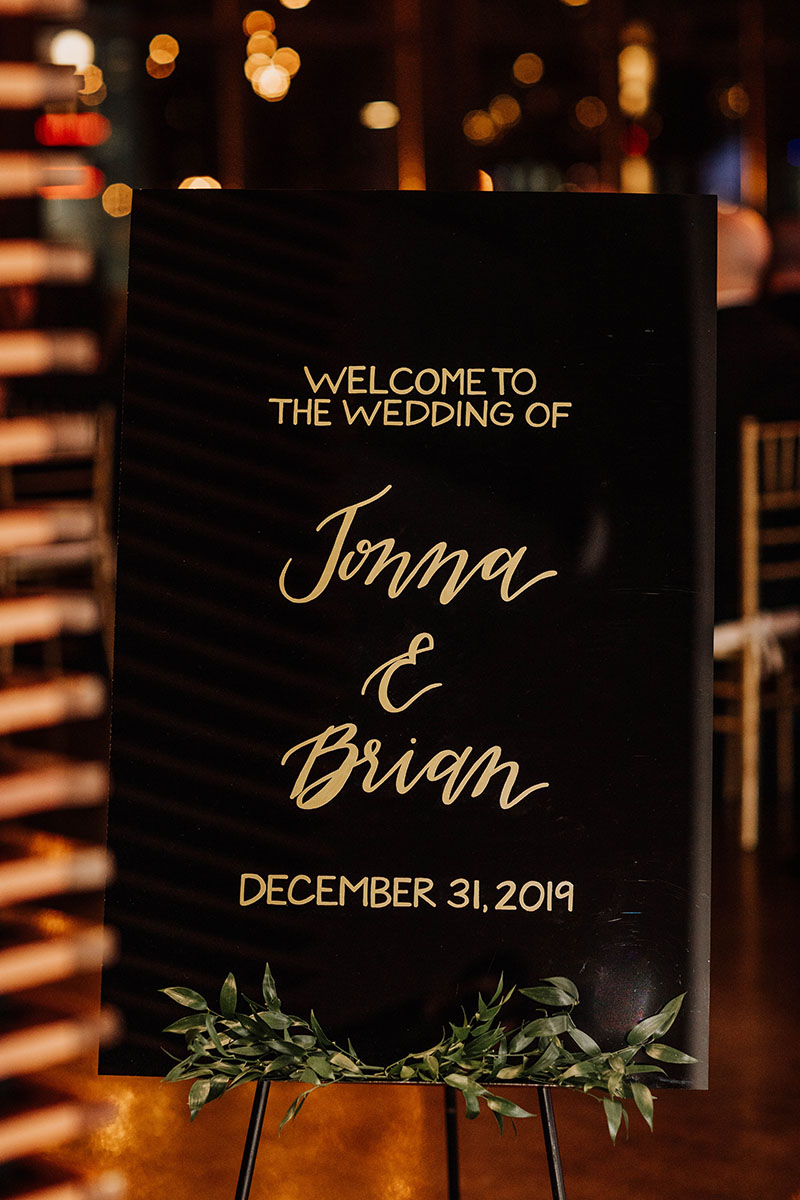 WELCOME TO
THE WEDDING OF
Jonna
&
Brian
DECEMBER 31, 2019